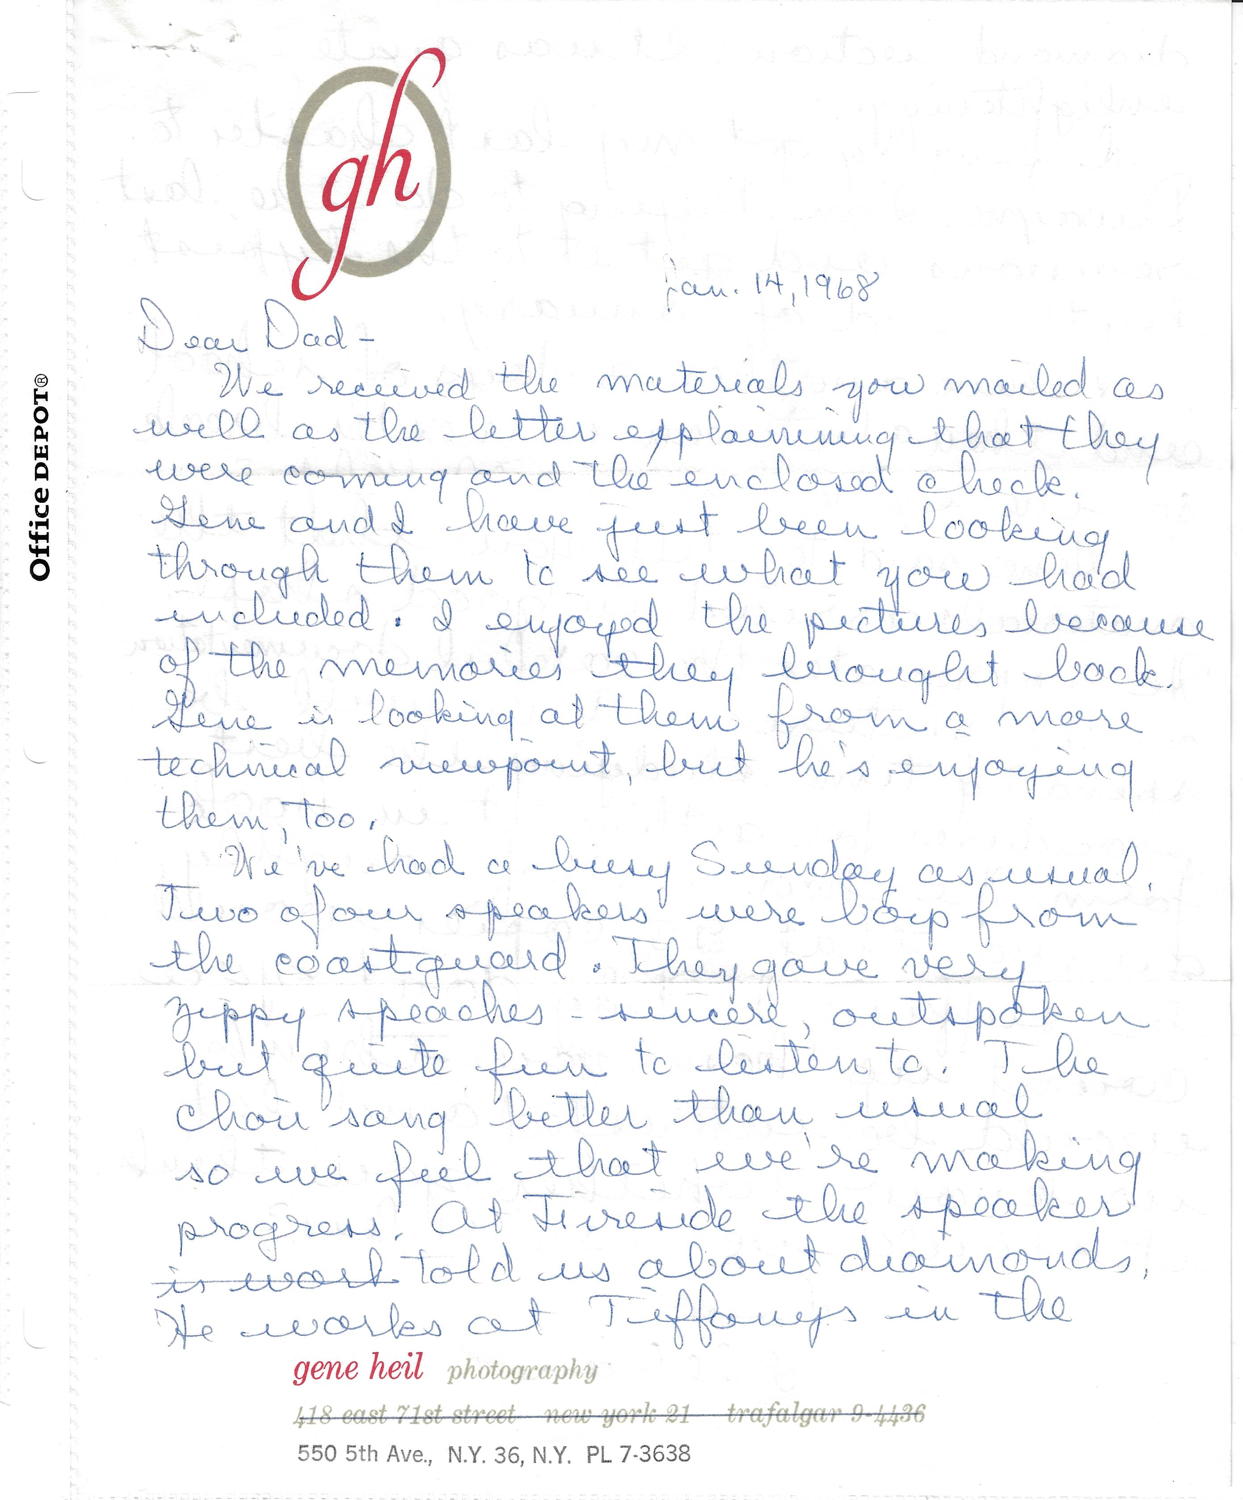 gh
Jan. 14, 1968
Dear Dad -
We received the materials you mailed as
well as the letter explainining that they
were coming and the enclosed check.
Gene and I have just been looking
through them to see what you had
included. I enjoyed the pictures because
of the memories they brought back.
Gene is looking at them from a more
technical viewpoint, but he's enjoying
them, too.
We've had a busy Sunday as usual.
Two of our speakers were boys from
the coastguard. They gave very
zippy speaches - sincere, outspoken
but quite fun to listen to. The
choir sang better than usual
so we feel that we're making
progress. At Fireside the speaker
is work told us about diamonds,
He works at Tiffanys in the
gene heil photography
418 east 71st street new york 21 trafalgar 9-4436
550 5th Ave., N.Y. 36, N.Y. PL 7-3638
Office DEPOT®